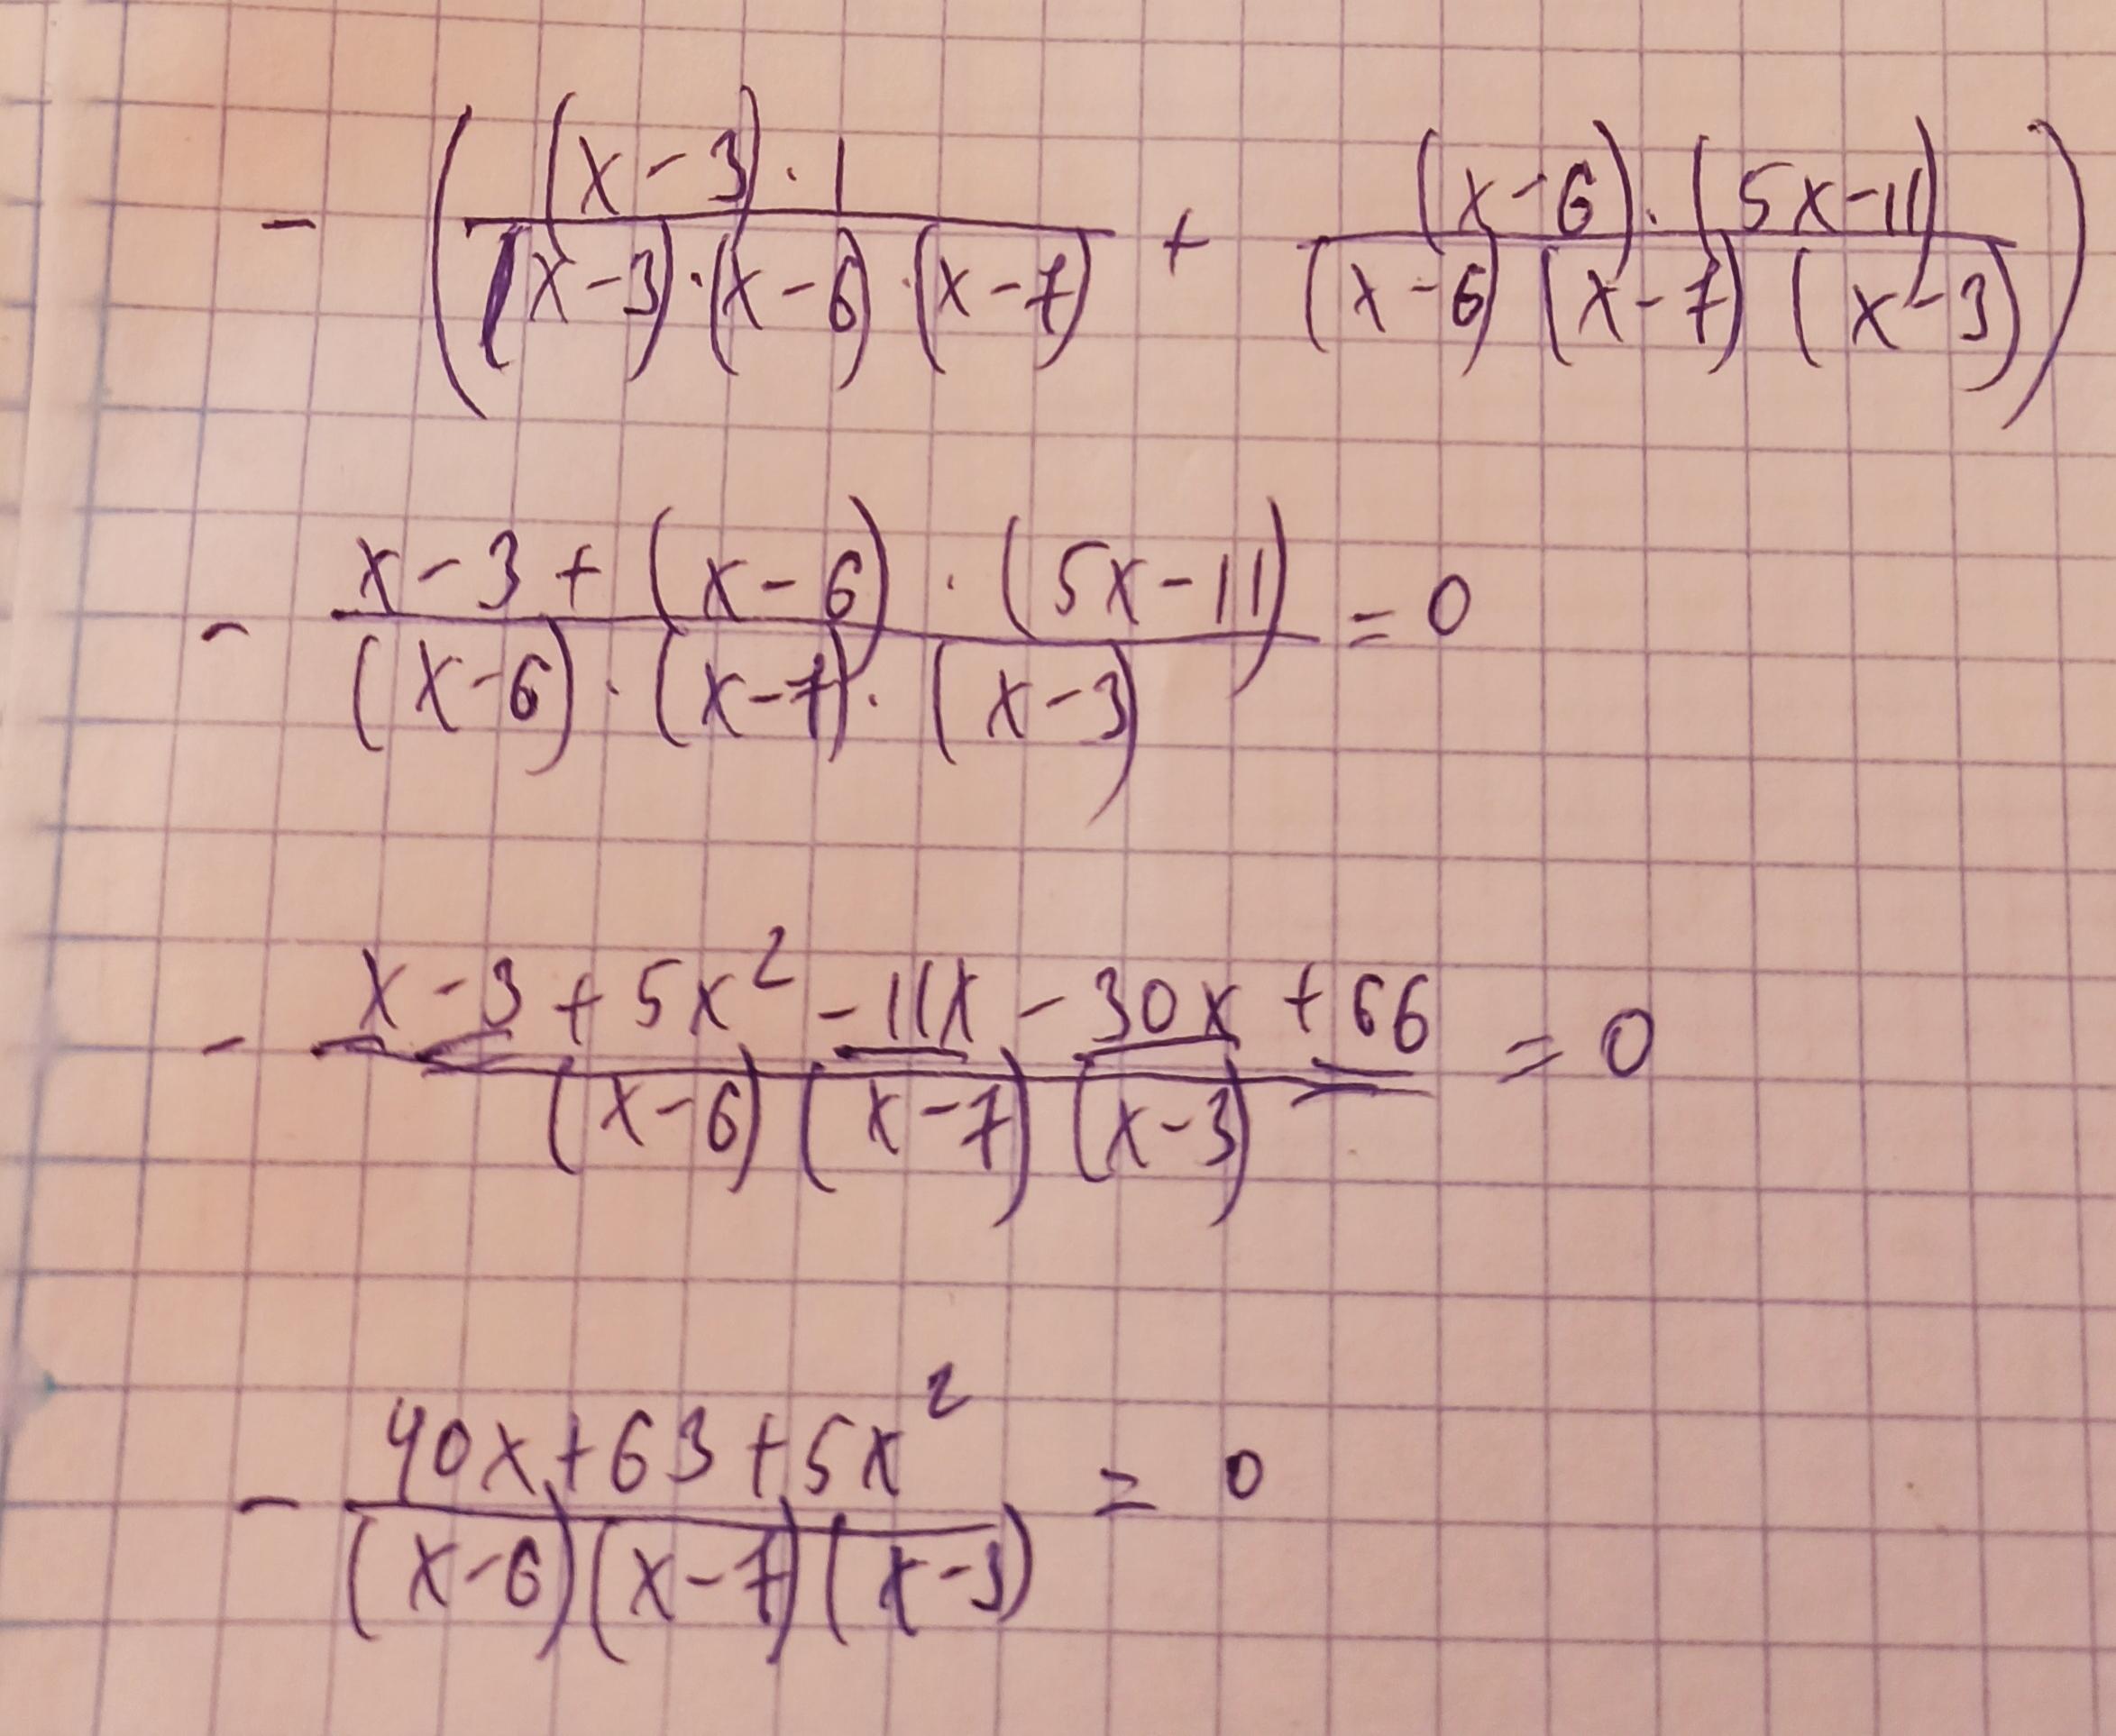 - ( (x-3)·1 / (x-3)·(x-6)·(x-7) + (x-6)·(5x-11) / (x-6)(x-7)(x-3) )
- x-3+(x-6)·(5x-11) / (x-6)·(x-7)·(x-3) = 0
- x-3+5x²-11x-30x+66 / (x-6)(x-7)(x-3) = 0
- 40x+63+5x² / (x-6)(x-7)(x-3) = 0